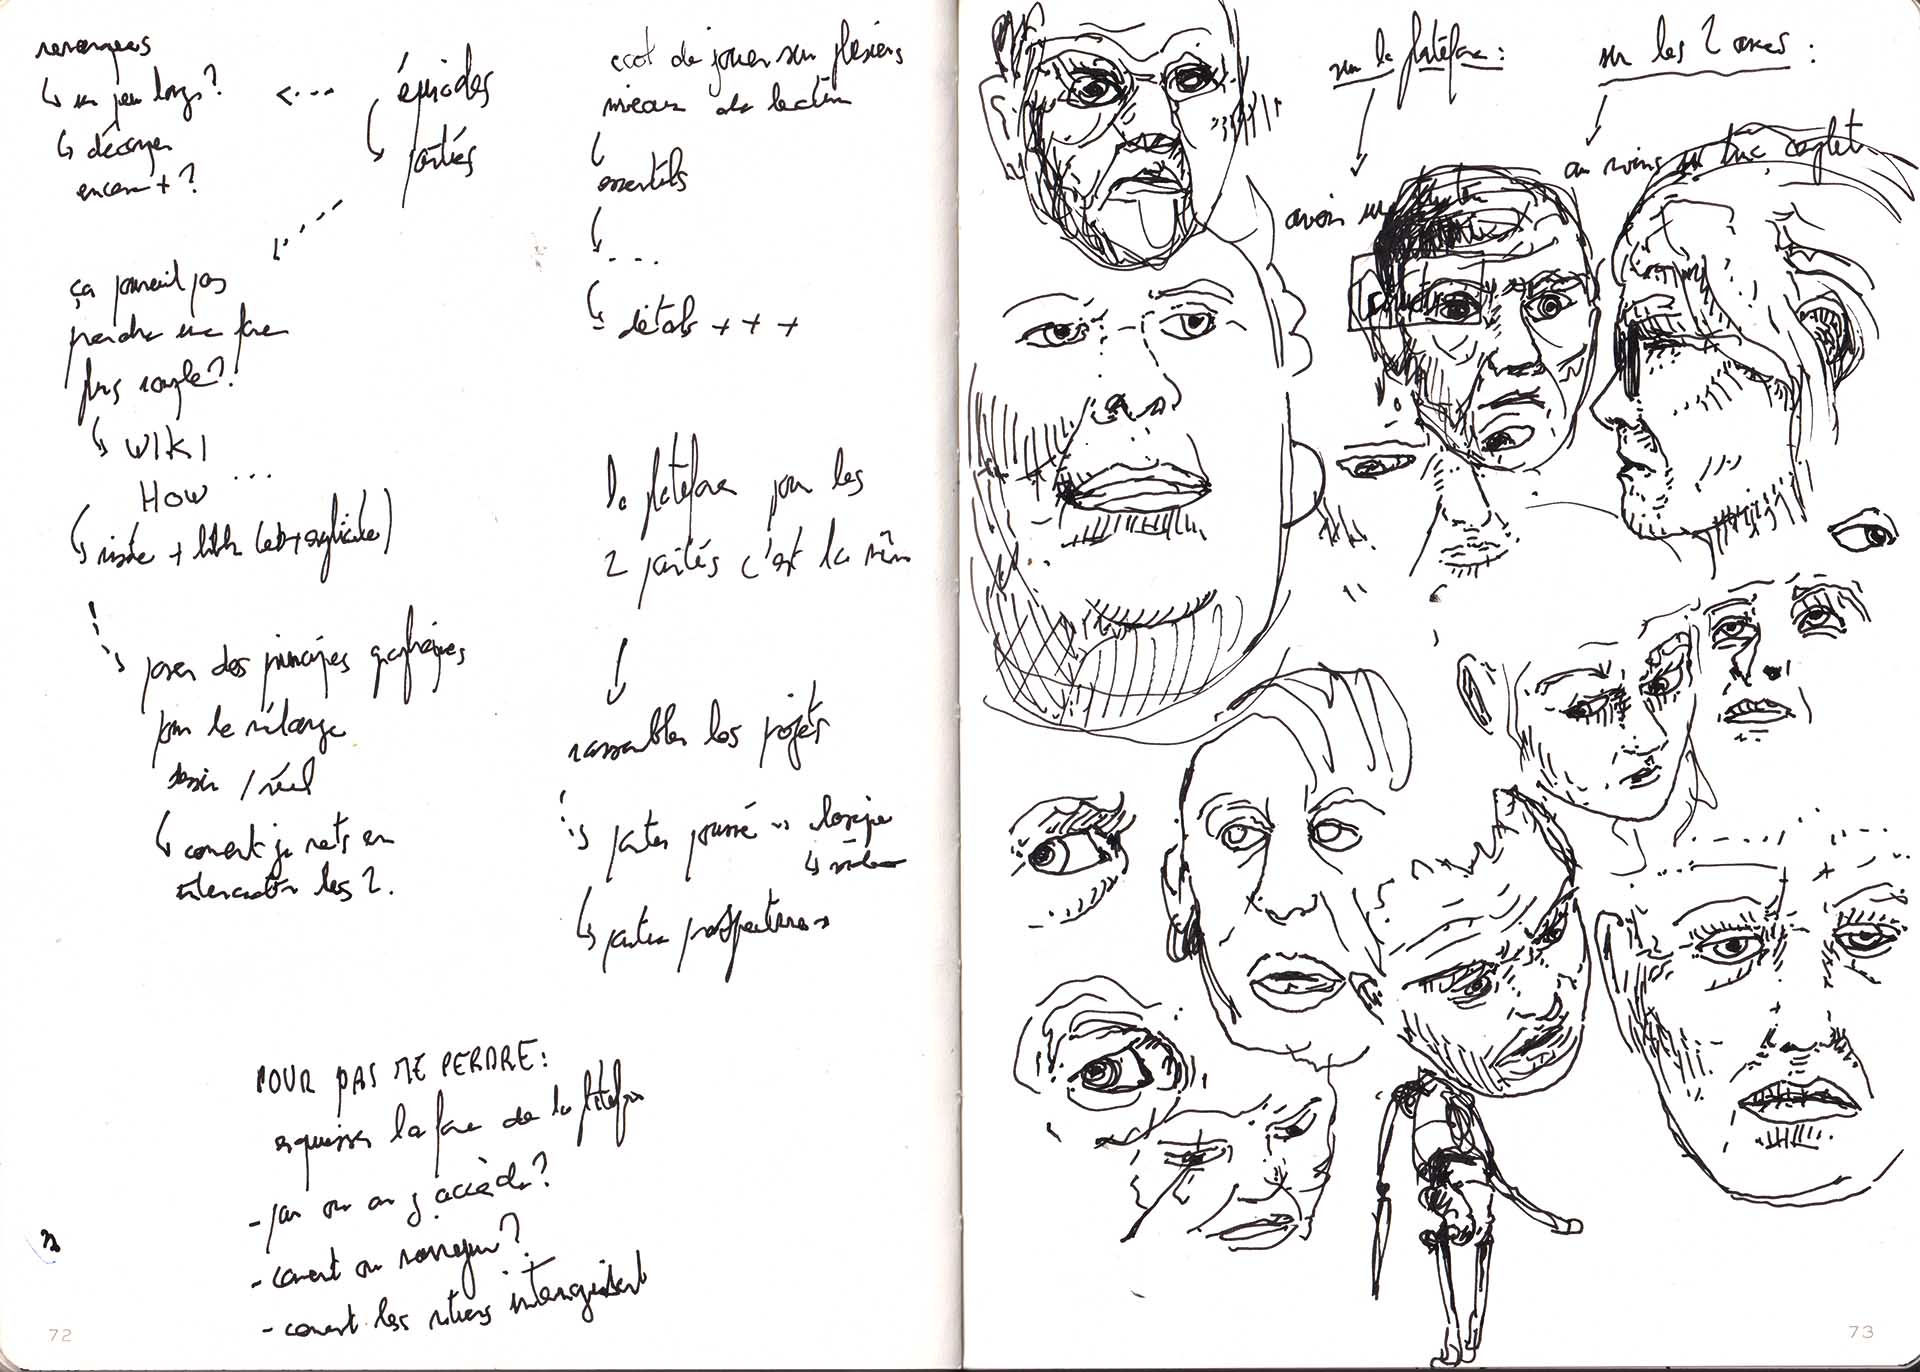 remarques
↳ un peu longs ?
↳ découper
encore + ?
<--- épisodes
↳ parties
ça pourrait pas
prendre une forme
plus souple ?
↳ WIKI
HOW ...
↳ poser des principes graphiques
pour le mélange
dessin / réel
↳ comment je mets en
interaction les 2.
de jouer sur plusieurs
niveaux de lecture
↳ essentiels
↳ ...
↳ détails + + +
la plateforme pour les
2 parties c'est la même
↓
rassembler les projets
↳ parties
↳ parties prospectives
POUR PAS ME PERDRE :
esquisser la forme de la plateforme
- par où on y accède ?
- comment on navigue ?
- comment les métiers interagissent
72
sur la plateforme :
avoir un
sur les 2 axes :
au moins un truc complet
73